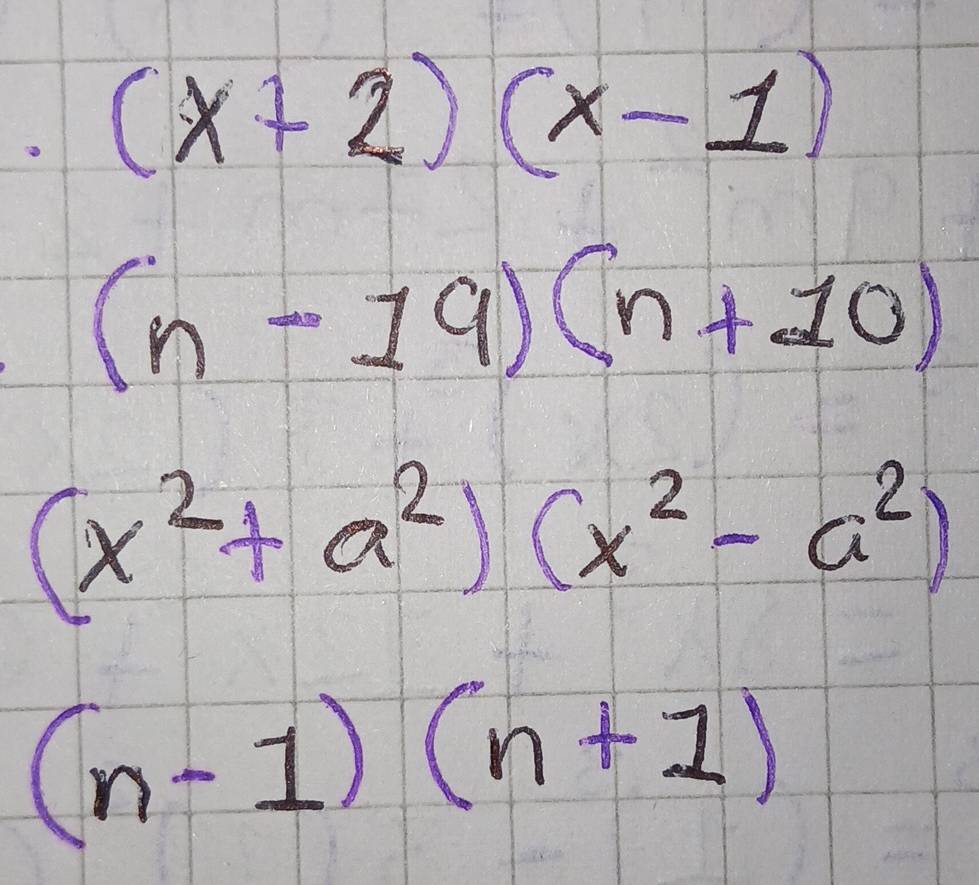 . (x + 2) (x - 1)
. (n - 19) (n + 10)
(x² + a²) (x² - a²)
(n - 1) (n + 1)